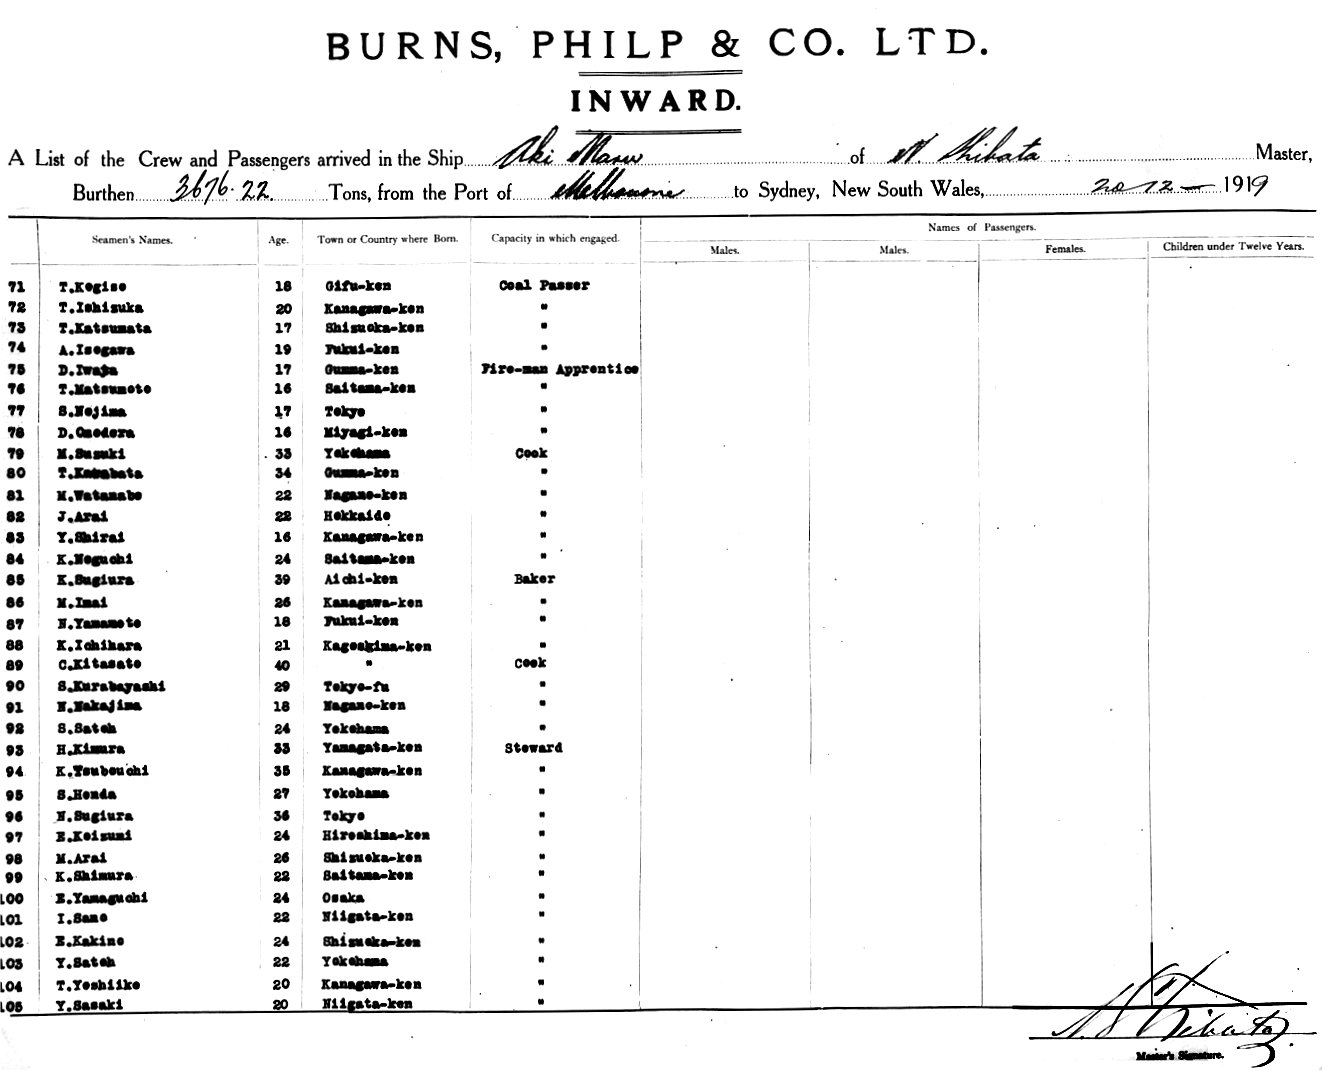 BURNS, PHILP & CO. LTD.
INWARD.
A List of the Crew and Passengers arrived in the Ship Aki Maru of N. Shibata Master,
Burthen 3676.22. Tons, from the Port of Melbourne to Sydney, New South Wales, 20 12 — 1919
Names of Passengers.
Seamen's Names. Age. Town or Country where Born. Capacity in which engaged. Males. Males. Females. Children under Twelve Years.
71 T.Kogiso 18 Gifu-ken Coal Passer
72 T.Ishizuka 20 Kanagawa-ken "
73 T.Katsumata 17 Shizuoka-ken "
74 A.Isogawa 19 Fukui-ken "
75 D. 17 Gumma-ken Fire-man Apprentice
76 T.Matsumoto 16 Saitama-ken "
77 S.Nojima 17 Tokyo "
78 D.Onodera 16 Miyagi-ken "
79 M.Suzuki 33 Yokohama Cook
80 T. 34 Gumma-ken "
81 M.Watanabe 22 Nagano-ken "
82 J.Arai 22 Hokkaido "
83 Y.Shirai 16 Kanagawa-ken "
84 K.Noguchi 24 Saitama-ken "
85 K.Sugiura 39 Aichi-ken Baker
86 M.Imai 26 Kanagawa-ken "
87 N.Yamamoto 18 Fukui-ken "
88 K.Ichihara 21 Kagoshima-ken "
89 C.Kitasato 40 " Cook
90 S.Kurabayashi 29 Tokyo-fu "
91 N.Nakajima 18 Nagano-ken "
92 S.Satoh 24 Yokohama "
93 H.Kimura 33 Yamagata-ken Steward
94 K.Tsubouchi 35 Kanagawa-ken "
95 S.Honda 27 Yokohama "
96 N.Sugiura 36 Tokyo "
97 E.Koizumi 24 Hiroshima-ken "
98 M.Arai 26 Shizuoka-ken "
99 K.Shimura 22 Saitama-ken "
100 E.Yamaguchi 24 Osaka "
101 I.Sano 22 Niigata-ken "
102 E.Kakino 24 Shizuoka-ken "
103 Y.Satoh 22 Yokohama "
104 T.Yoshiike 20 Kanagawa-ken "
105 Y.Sasaki 20 Niigata-ken "
N. Shibata
Master's Signature.